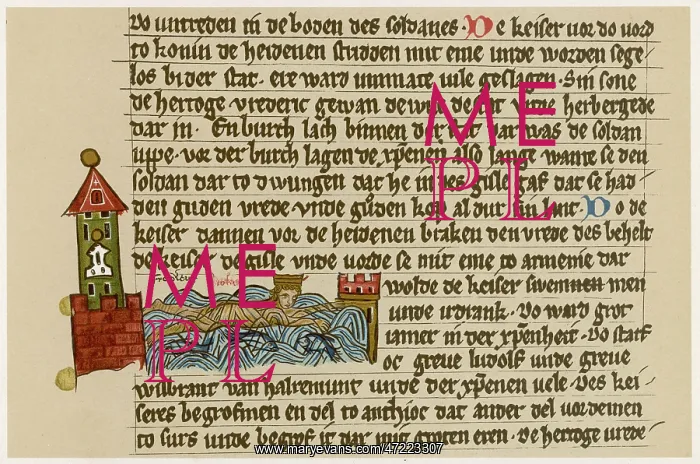 vo untreden in de boden des soldanes. De keiser vor do vord
to konin de heidenen stridden mit eme unde worden sege
los bi der stat. ere ward unmate vile geslagen. Sin sone
de hertoge vrederic gewan de stat unde herbergede
dar in. En burch lach binnen der stat dar was de soldan
uppe. vor der burch lagen de xpenen also lange wante se den
soldan dar to dwungen dat he in des gisle gaf dat se had
den guden vrede. unde guden kop al dur sin lant. Do de
keiser dannen vor de heidenen braken den vrede des behelt
de keiser de gisle unde vorde se mit eme to armenie dar
wolde de keiser swemmen
unde irdrank. Do ward grot
iamer in der xpenheit. Do starf
oc greve ludolf unde greve
wilbrant van halremunt unde der xpenen vele. Des kei
seres begrofmen en del to anthioc dat ander del vordemen
to surs unde begrof it dar mit groten eren. De hertoge vrede
ME
PL
ME
PL
www.maryevans.com/47223307